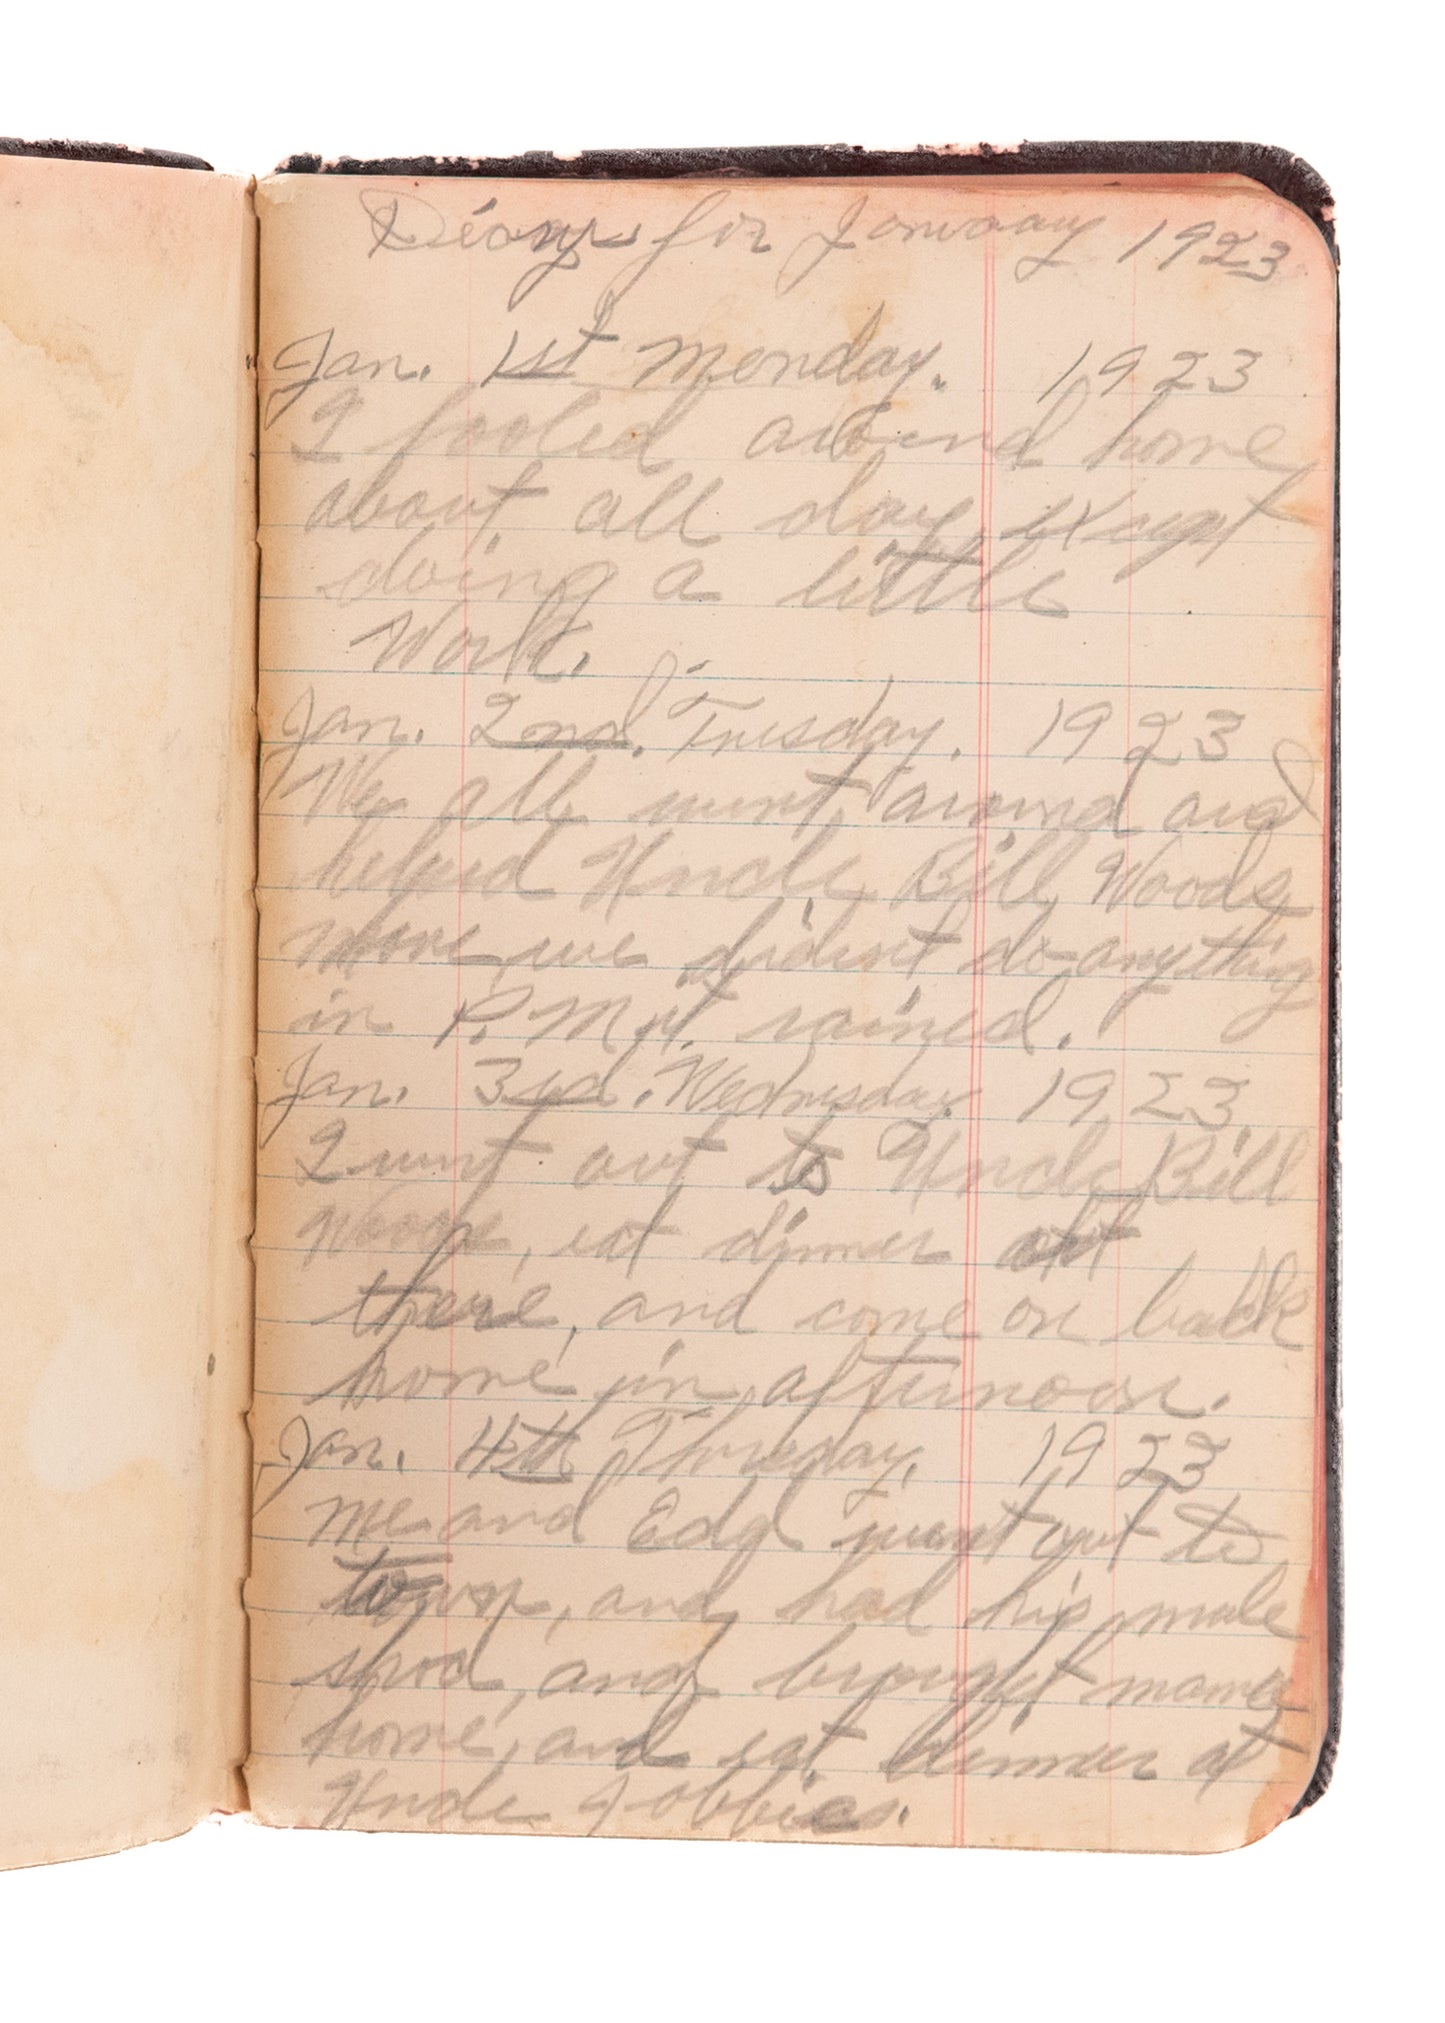 Diary for January 1923
Jan. 1st Monday. 1923
I fooled around home
about all day except
doing a little
Work.
Jan. 2nd. Tuesday. 1923
We all went around and
helped Uncle Bill Woods
move, we didn't do anything
in P.M. it rained.
Jan. 3rd. Wednesday. 1923
I went out to Uncle Bill
Woods, eat dinner out
there, and come on back
home in afternoon.
Jan. 4th Thursday, 1923
me and Edd went out to
town, and had his mule
shod, and brought mama
home, and eat dinner at
Uncle Jobbies.